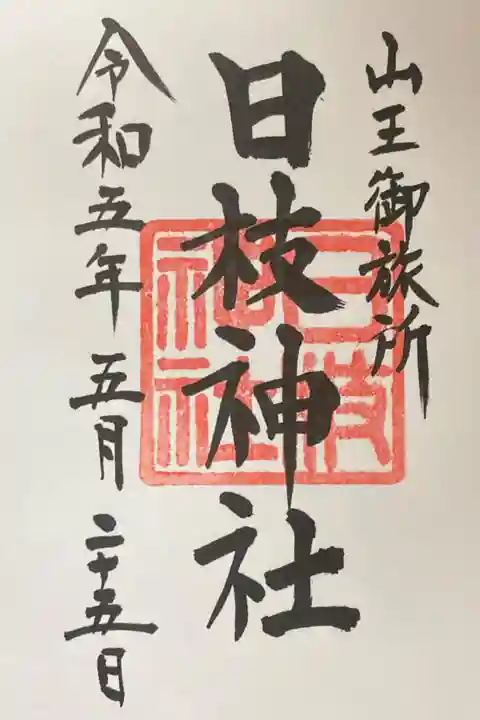 山王御旅所
日枝神社
日枝神社
令和五年五月二十五日